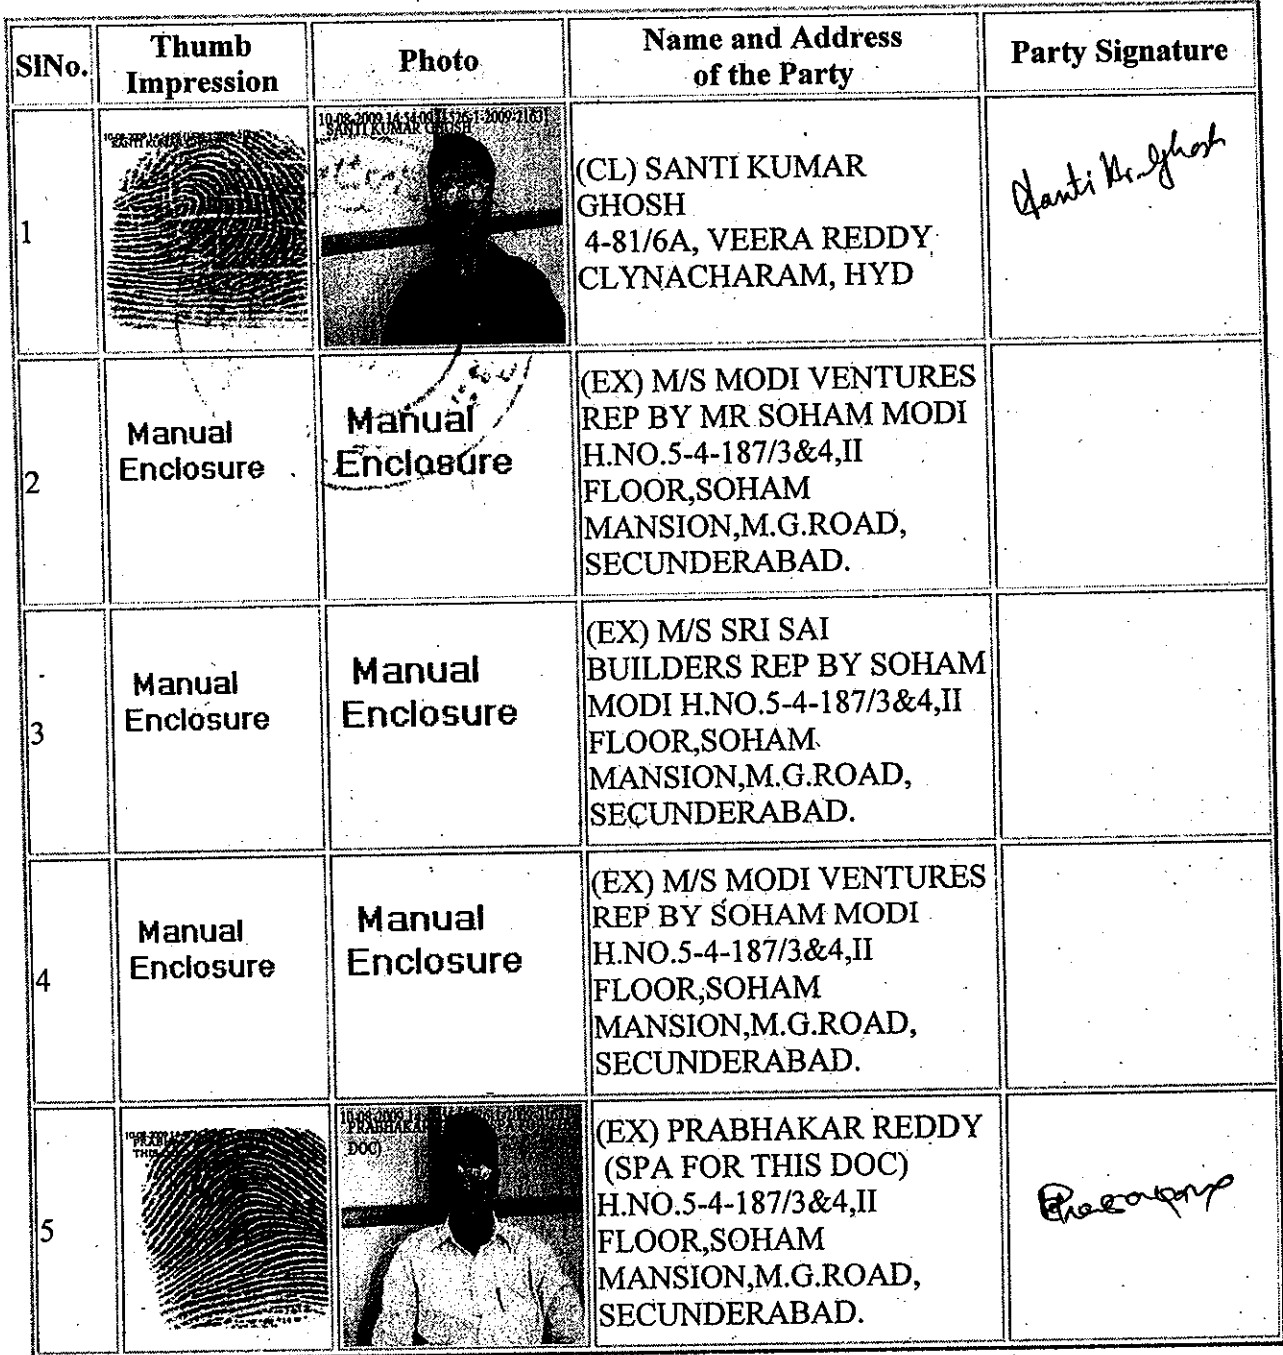 SlNo.
Thumb
Impression
Photo
Name and Address
of the Party
Party Signature
1
SANTI KUMAR GHOSH
10-08-2009 14:54:09
SANTI KUMAR GHOSH
(CL) SANTI KUMAR
GHOSH
4-81/6A, VEERA REDDY
CLYNACHARAM, HYD
Santi Kr. Ghosh
2
Manual
Enclosure
Manual
Enclosure
(EX) M/S MODI VENTURES
REP BY MR SOHAM MODI
H.NO.5-4-187/3&4,II
FLOOR,SOHAM
MANSION,M.G.ROAD,
SECUNDERABAD.
3
Manual
Enclosure
Manual
Enclosure
(EX) M/S SRI SAI
BUILDERS REP BY SOHAM
MODI H.NO.5-4-187/3&4,II
FLOOR,SOHAM
MANSION,M.G.ROAD,
SECUNDERABAD.
4
Manual
Enclosure
Manual
Enclosure
(EX) M/S MODI VENTURES
REP BY SOHAM MODI
H.NO.5-4-187/3&4,II
FLOOR,SOHAM
MANSION,M.G.ROAD,
SECUNDERABAD.
5
10-08-2009
PRABHAKAR
DOC)
(EX) PRABHAKAR REDDY
(SPA FOR THIS DOC)
H.NO.5-4-187/3&4,II
FLOOR,SOHAM
MANSION,M.G.ROAD,
SECUNDERABAD.